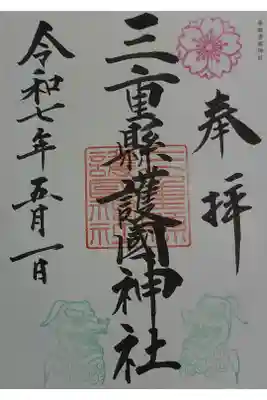 奉拝
三重縣護國神社
令和七年五月一日